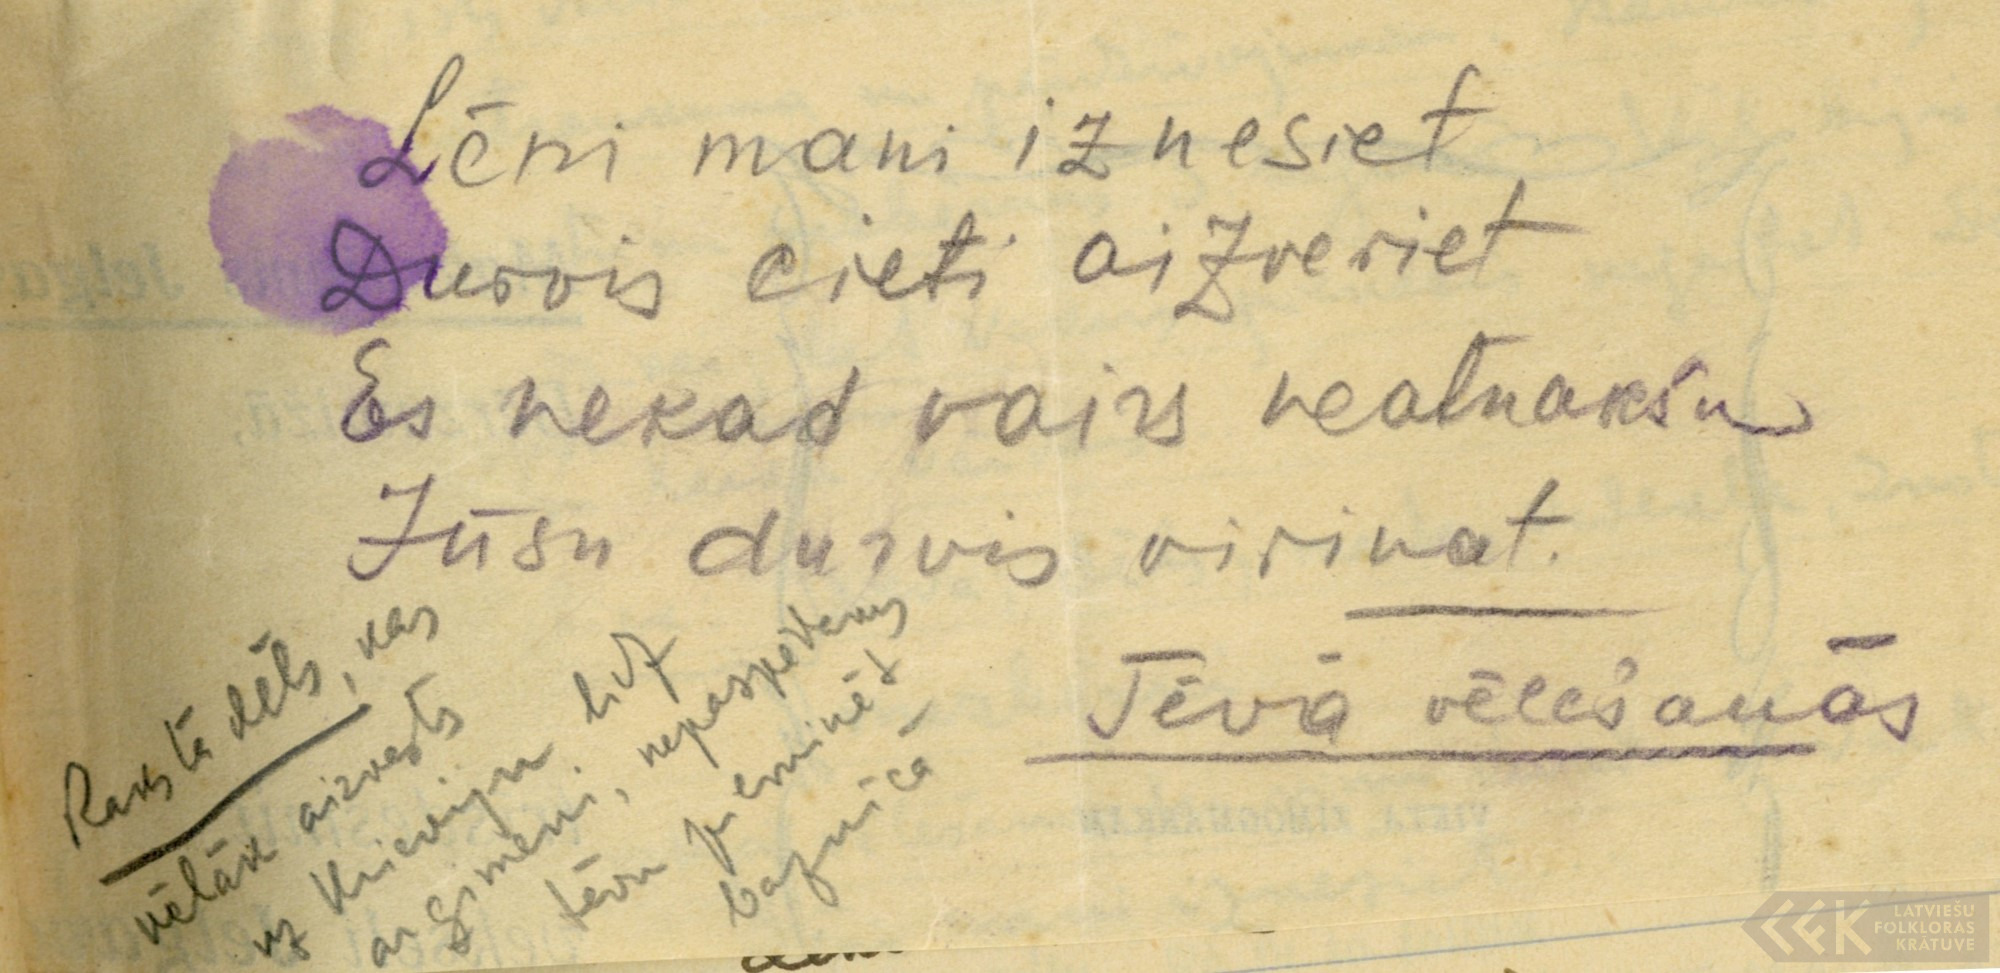 Lēni mani iznesiet
Durvis cieti aizveriet
Es nekad vairs neatnakšu
Jūsu durvis virinat.
Tēvā vēlēšanās
Rakstā dēls, kas
vēlāk aizvests
uz Krieviju līdz
ar ģimeni, nepaspēdams
tēvu pieminēt
baznīcā
LATVIEŠU
FOLKLORAS
KRĀTUVE